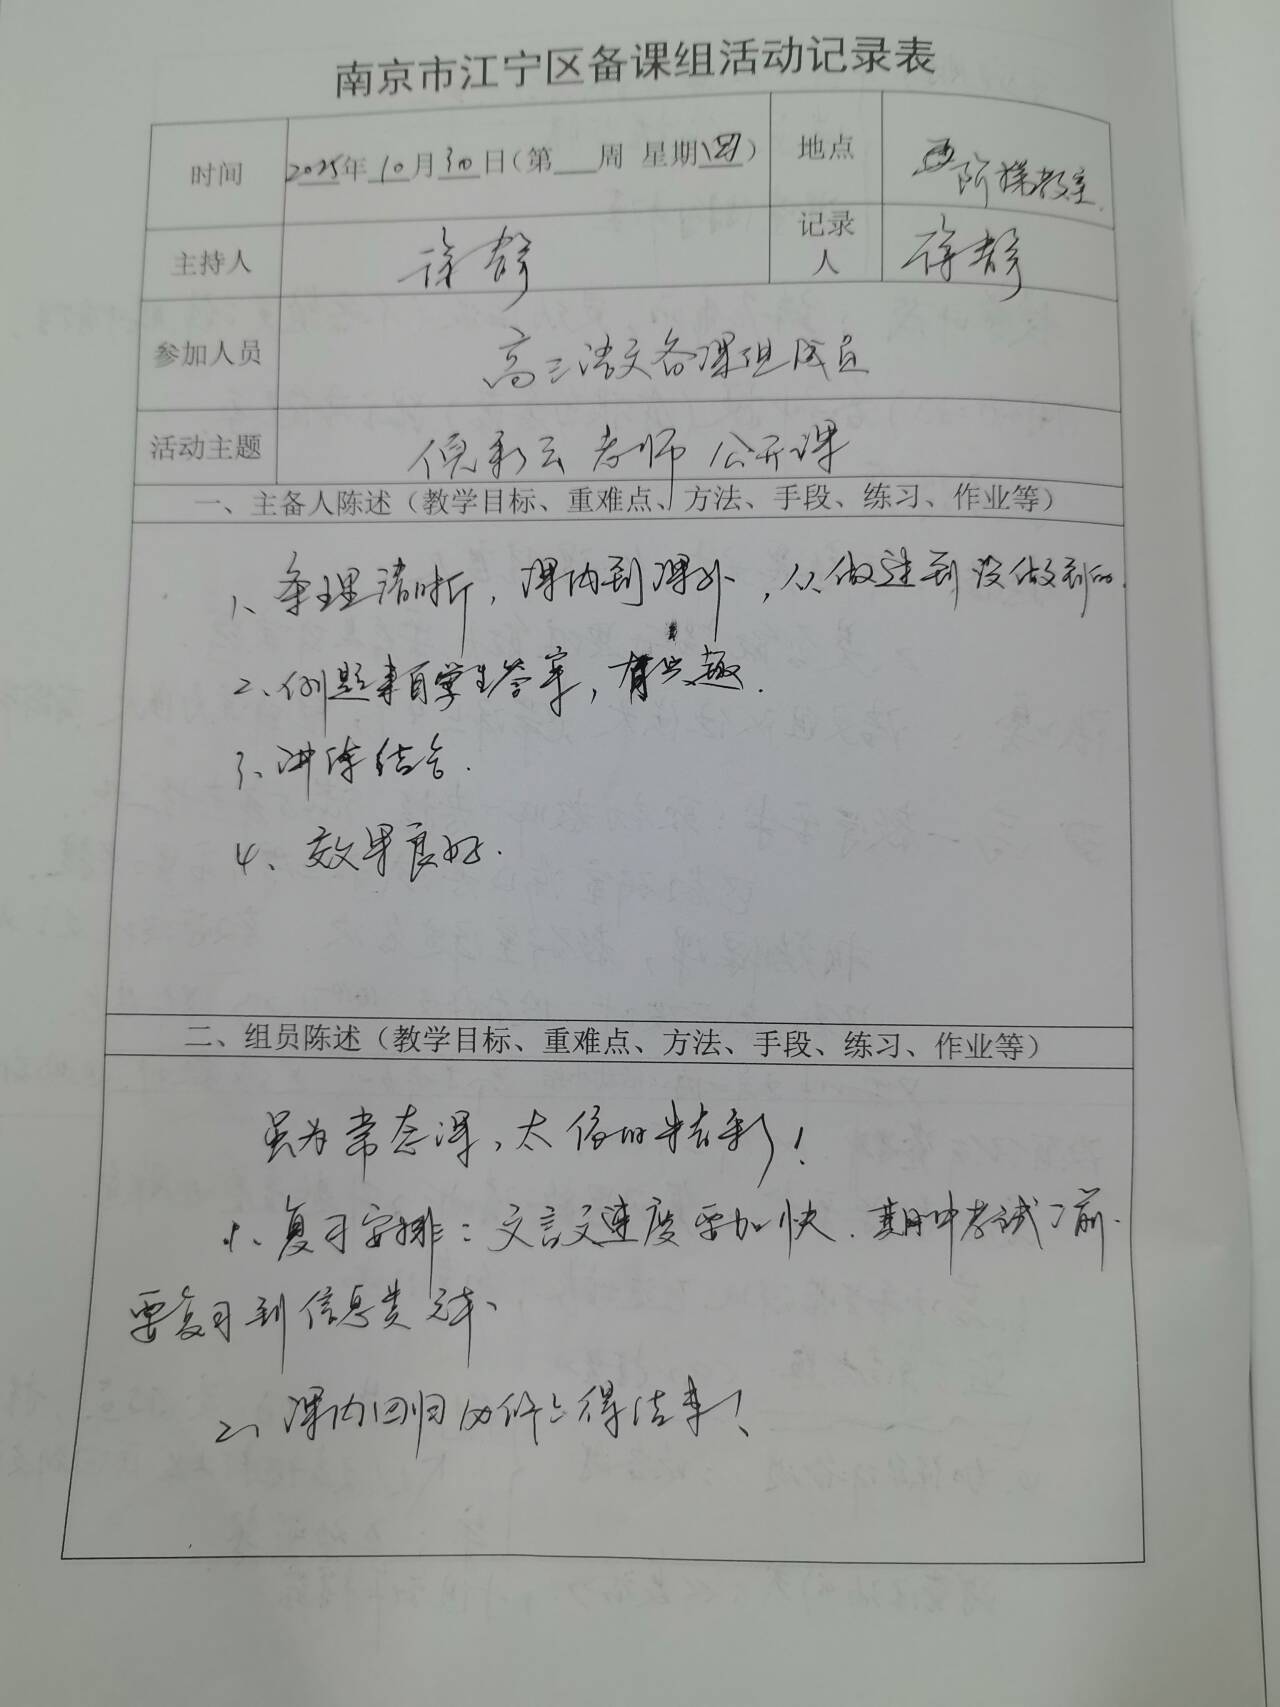 南京市江宁区备课组活动记录表
时间 2025年10月30日(第__周 星期四) 地点 西阶梯教室.
主持人 徐静 记录人 徐静
参加人员 高三语文备课组成员
活动主题 倪彩云老师 公开课
一、主备人陈述（教学目标、重难点、方法、手段、练习、作业等）
1、条理清晰，课内到课外，从做过到没做到的.
2、例题来自学生答案，有兴趣.
3、讲练结合.
4、效果良好.
二、组员陈述（教学目标、重难点、方法、手段、练习、作业等）
虽为常态课，太的精彩！
1、复习安排：文言文速度要加快.期中考试了前.
要复习到信息类
2、课内回归必得结束！